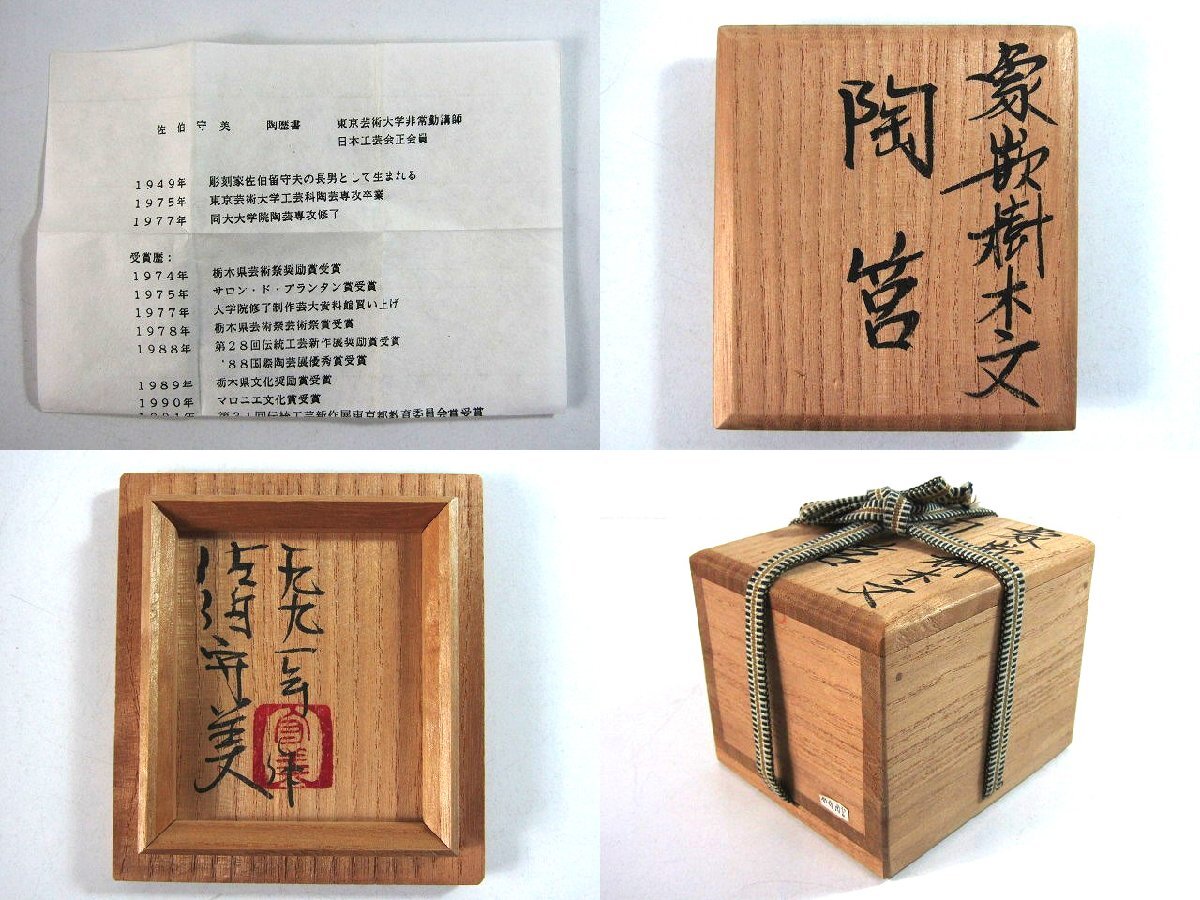 佐伯守美　陶歴書　東京芸術大学非常勤講師
日本工芸会正会員
1949年　彫刻家佐伯留守夫の長男として生まれる
1975年　東京芸術大学工芸科陶芸専攻卒業
1977年　同大大学院陶芸専攻修了
受賞歴：
1974年　栃木県芸術祭奨励賞受賞
1975年　サロン・ド・プランタン賞受賞
1977年　大学院修了制作芸大資料館買い上げ
1978年　栃木県芸術祭芸術祭賞受賞
1988年　第28回伝統工芸新作展奨励賞受賞
'88国際陶芸展優秀賞受賞
1989年　栃木県文化奨励賞受賞
1990年　マロニエ文化賞受賞
1991年　第31回伝統工芸新作展東京都教育委員会賞受賞
象嵌樹木文
陶筥
一九九一年作
佐伯守美
守美
象嵌樹木文